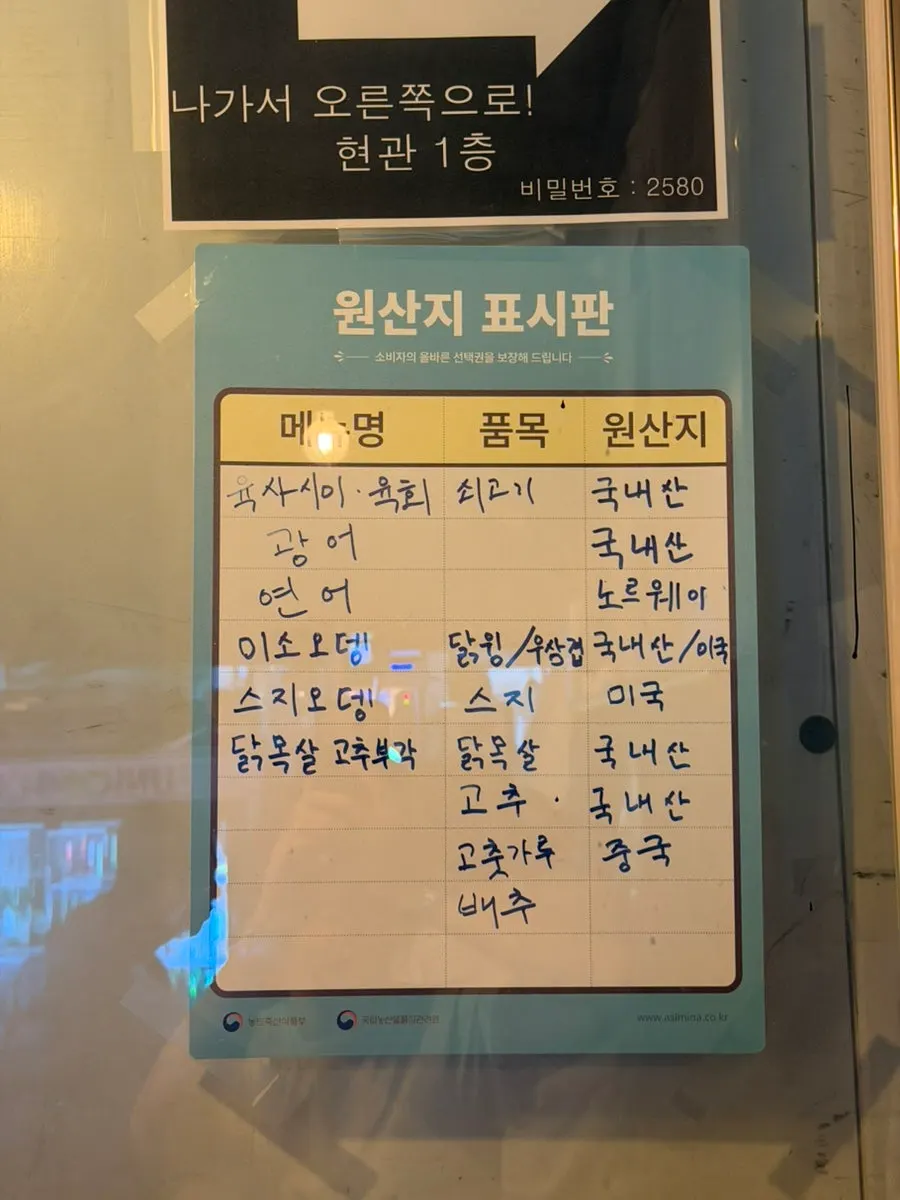 나가서 오른쪽으로!
현관 1층
비밀번호 : 2580
원산지 표시판
소비자의 올바른 선택권을 보장해 드립니다
메뉴명 품목 원산지
육사시미·육회 쇠고기 국내산
광어 국내산
연어 노르웨이
미소오뎅 닭윙/우삼겹 국내산/미국
스지오뎅 스지 미국
닭목살 고추부각 닭목살 국내산
고추 국내산
고춧가루 중국
배추
농림축산식품부 국립농산물품질관리원 www.aslmina.co.kr